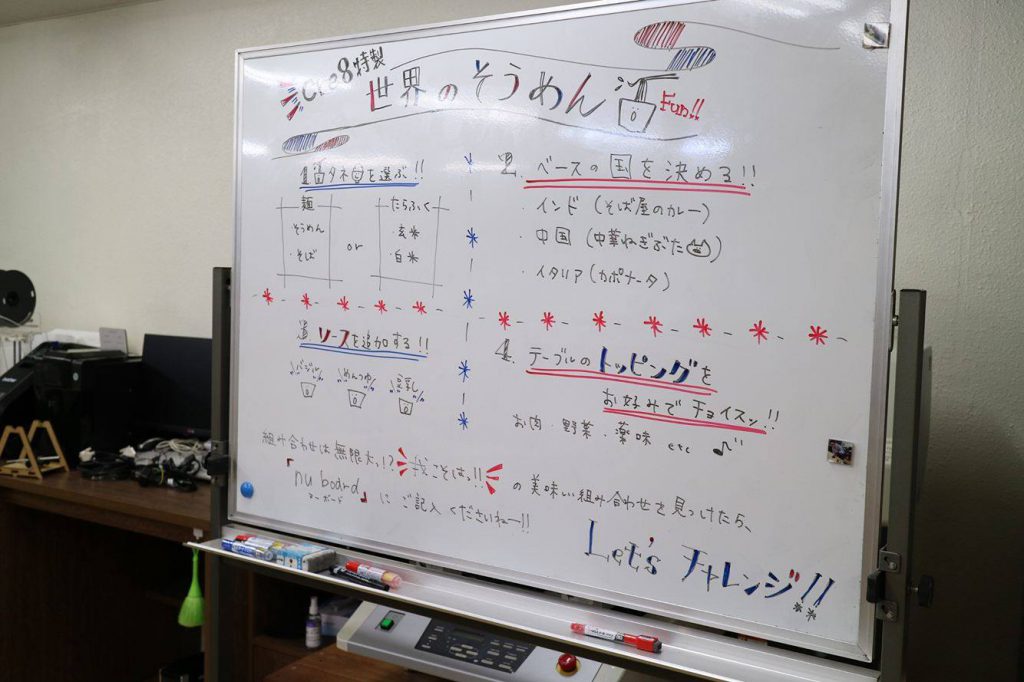 特製
世界のそうめん
Fun!!
を選ぶ!!
麺
そうめん
・そば
or
たらふく
・玄米
・白米
2. ベースの国を決める!!
・インド（そば屋のカレー）
・中国（中華ねぎぶた）
・イタリア（カポナータ）
ソースを追加する!!
バジル
めんつゆ
豆乳
4. テーブルのトッピングを
お好みでチョイスッ!!
お肉・野菜・薬味 etc
組み合わせは無限大っ!? 我こそはっ!! の美味しい組み合わせを見つけたら、
「nu board」にご記入くださいねー!!
ヌーボード
Let's チャレンジ!!